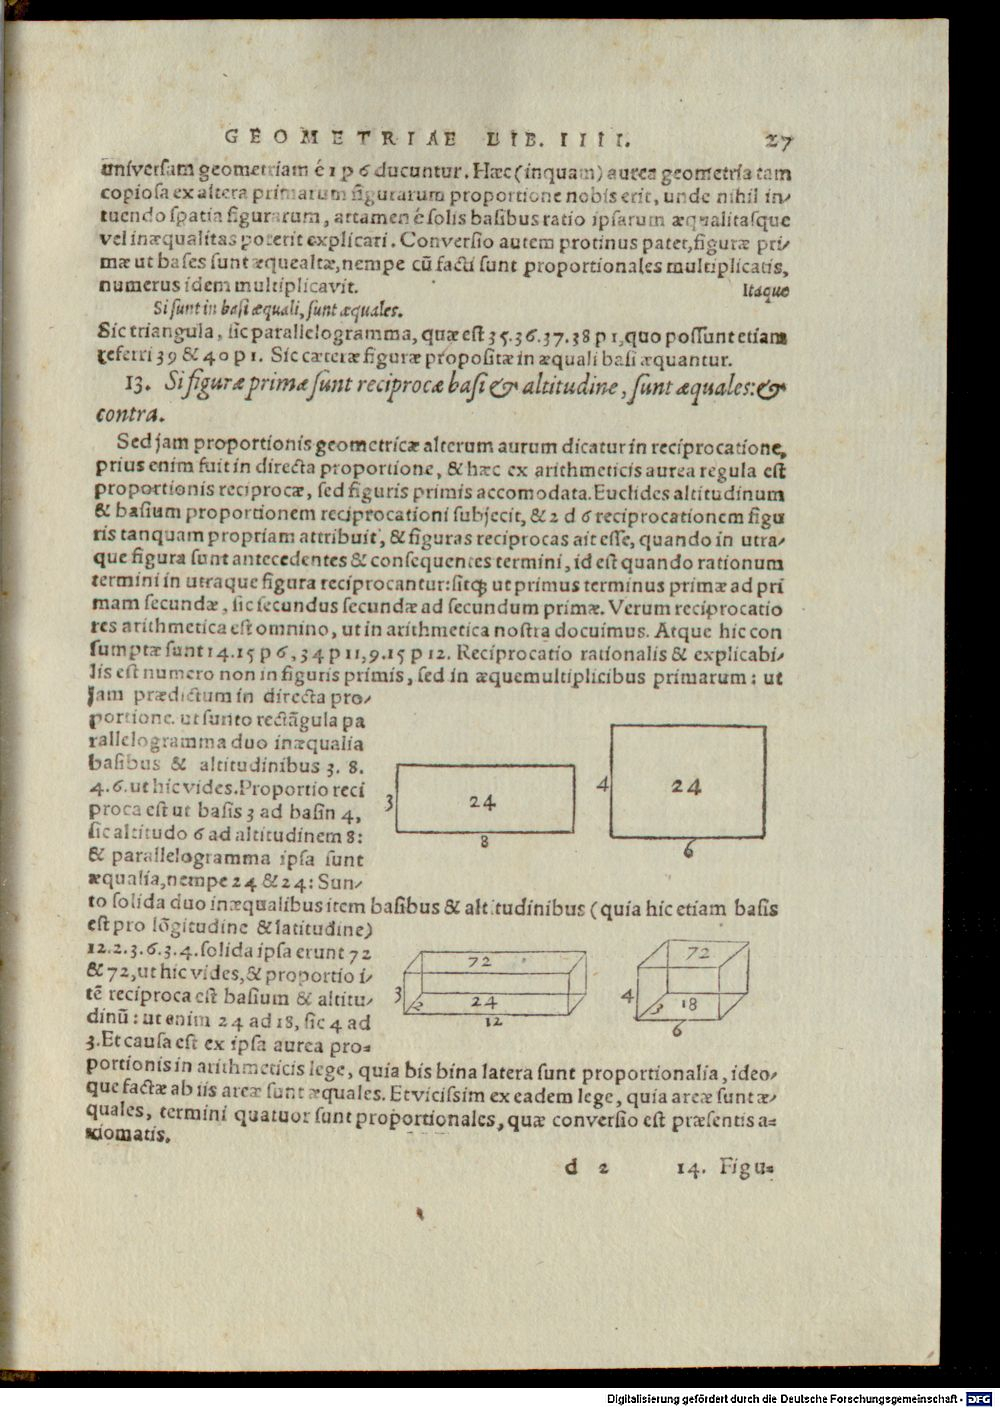 GEOMETRIAE LIB. IIII. 27
universam geometriam é 1 p 6 ducuntur. Hæc (inquam) aurea geometria tam
copiosa ex altera primarum figurarum proportione nobis erit, unde nihil in-
tuendo spatia figurarum, attamen é solis basibus ratio ipsarum æqualitasque
vel inæqualitas poterit explicari. Conversio autem protinus patet, figuræ pri-
mæ ut bases sunt æquealtæ, nempe cũ facti sunt proportionales multiplicatis,
numerus idem multiplicavit. Itaque
Si sunt in basi æquali, sunt æquales.
Sic triangula, sic parallelogramma, quæ est 35.36.37.38 p 1, quo possunt etiam
referri 39 & 40 p 1. Sic cæteræ figuræ propositæ in æquali basi æquantur.
13. Si figuræ primæ sunt reciprocæ basi & altitudine, sunt æquales: &
contra.
Sed jam proportionis geometricæ alterum aurum dicatur in reciprocatione,
prius enim fuit in directa proportione, & hæc ex arithmeticis aurea regula est
proportionis reciprocæ, sed figuris primis accomodata. Euclides altitudinum
& basium proportionem reciprocationi subjecit, & 2 d 6 reciprocationem figu
ris tanquam propriam attribuit, & figuras reciprocas ait esse, quando in utra-
que figura sunt antecedentes & consequentes termini, id est quando rationum
termini in utraque figura reciprocantur: sitq; ut primus terminus primæ ad pri
mam secundæ, sic secundus secundæ ad secundum primæ. Verum reciprocatio
res arithmetica est omnino, ut in arithmetica nostra docuimus. Atque hic con
sumptæ sunt 14.15 p 6, 34 p 11, 9.15 p 12. Reciprocatio rationalis & explicabi-
lis est numero non in figuris primis, sed in æquemultiplicibus primarum: ut
jam prædictum in directa pro-
portione. ut sunto rectãgula pa
rallelogramma duo inæqualia
basibus & altitudinibus 3. 8.
4. 6. ut hic vides. Proportio reci
proca est ut basis 3 ad basin 4,
sic altitudo 6 ad altitudinem 8:
& parallelogramma ipsa sunt
æqualia, nempe 24 & 24: Sun-
3 24 8
4 24 6
to solida duo inæqualibus item basibus & altitudinibus (quia hic etiam basis
est pro lõgitudine & latitudine)
12.2.3.6.3.4. solida ipsa erunt 72
& 72, ut hic vides, & proportio i-
tẽ reciproca est basium & altitu-
dinũ: ut enim 24 ad 18, sic 4 ad
3. Et causa est ex ipsa aurea pro-
72 3 2 24 12
72 4 3 18 6
portionis in arithmeticis lege, quia bis bina latera sunt proportionalia, ideo-
que factæ ab iis areæ sunt æquales. Et vicissim ex eadem lege, quia areæ sunt æ-
quales, termini quatuor sunt proportionales, quæ conversio est præsentis a-
xiomatis.
d 2 14. Figu-
Digitalisierung gefördert durch die Deutsche Forschungsgemeinschaft - DFG